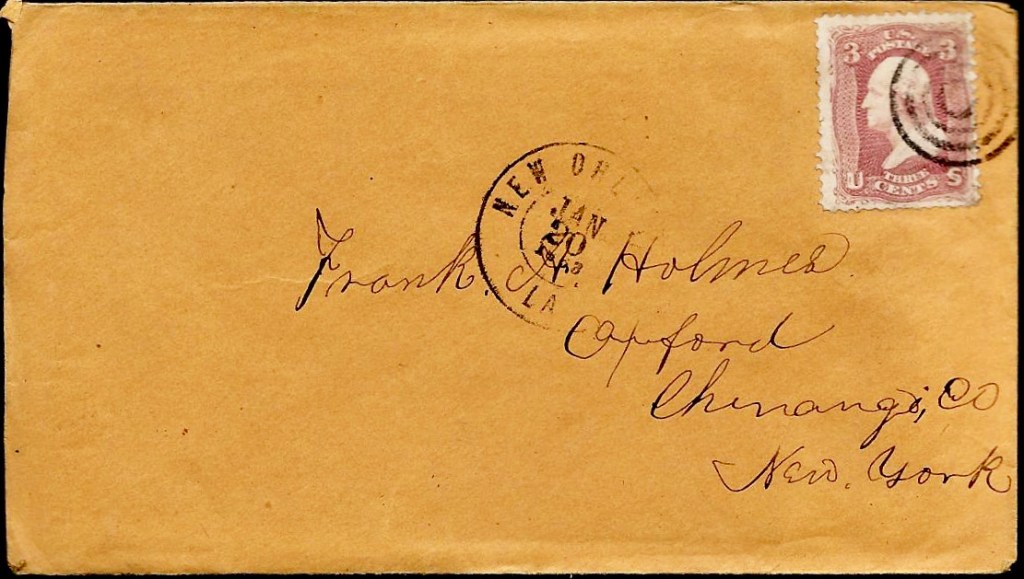 3 U.S. 3
POSTAGE
THREE
U CENTS S
NEW ORL
JAN
20
LA
Frank. J. Holmes.
Oxford
Chenango, Co
New. York